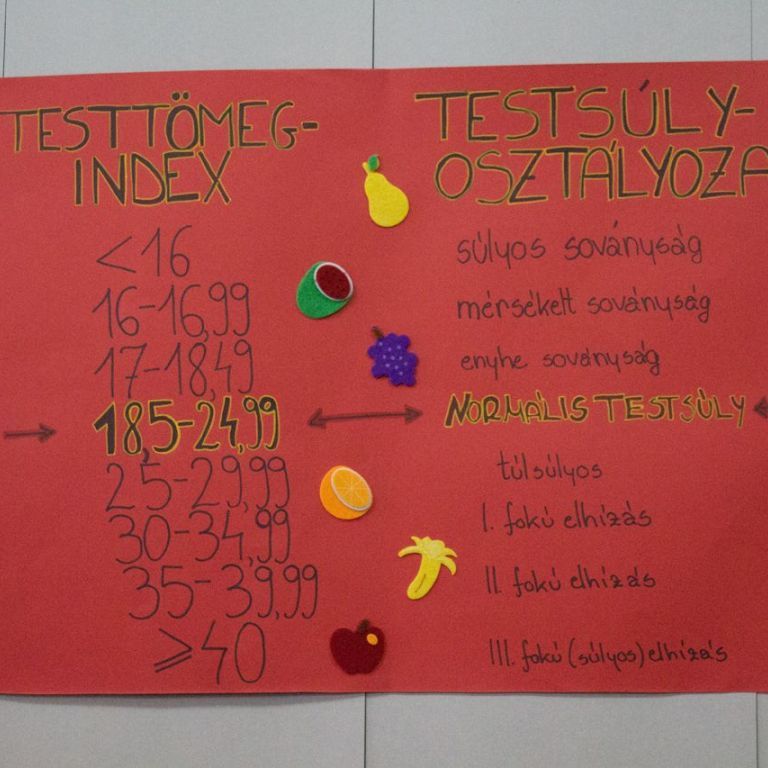 TESTTÖMEG-
INDEX
TESTSÚLY-
OSZTÁLYOZÁ
<16 súlyos soványság
16-16,99 mérsékelt soványság
17-18,49 enyhe soványság
18,5-24,99 NORMÁLIS TESTSÚLY
2,5-29,99 túlsúlyos
30-34,99 I. fokú elhízás
35-39,99 II. fokú elhízás
≥40 III. fokú (súlyos) elhízás